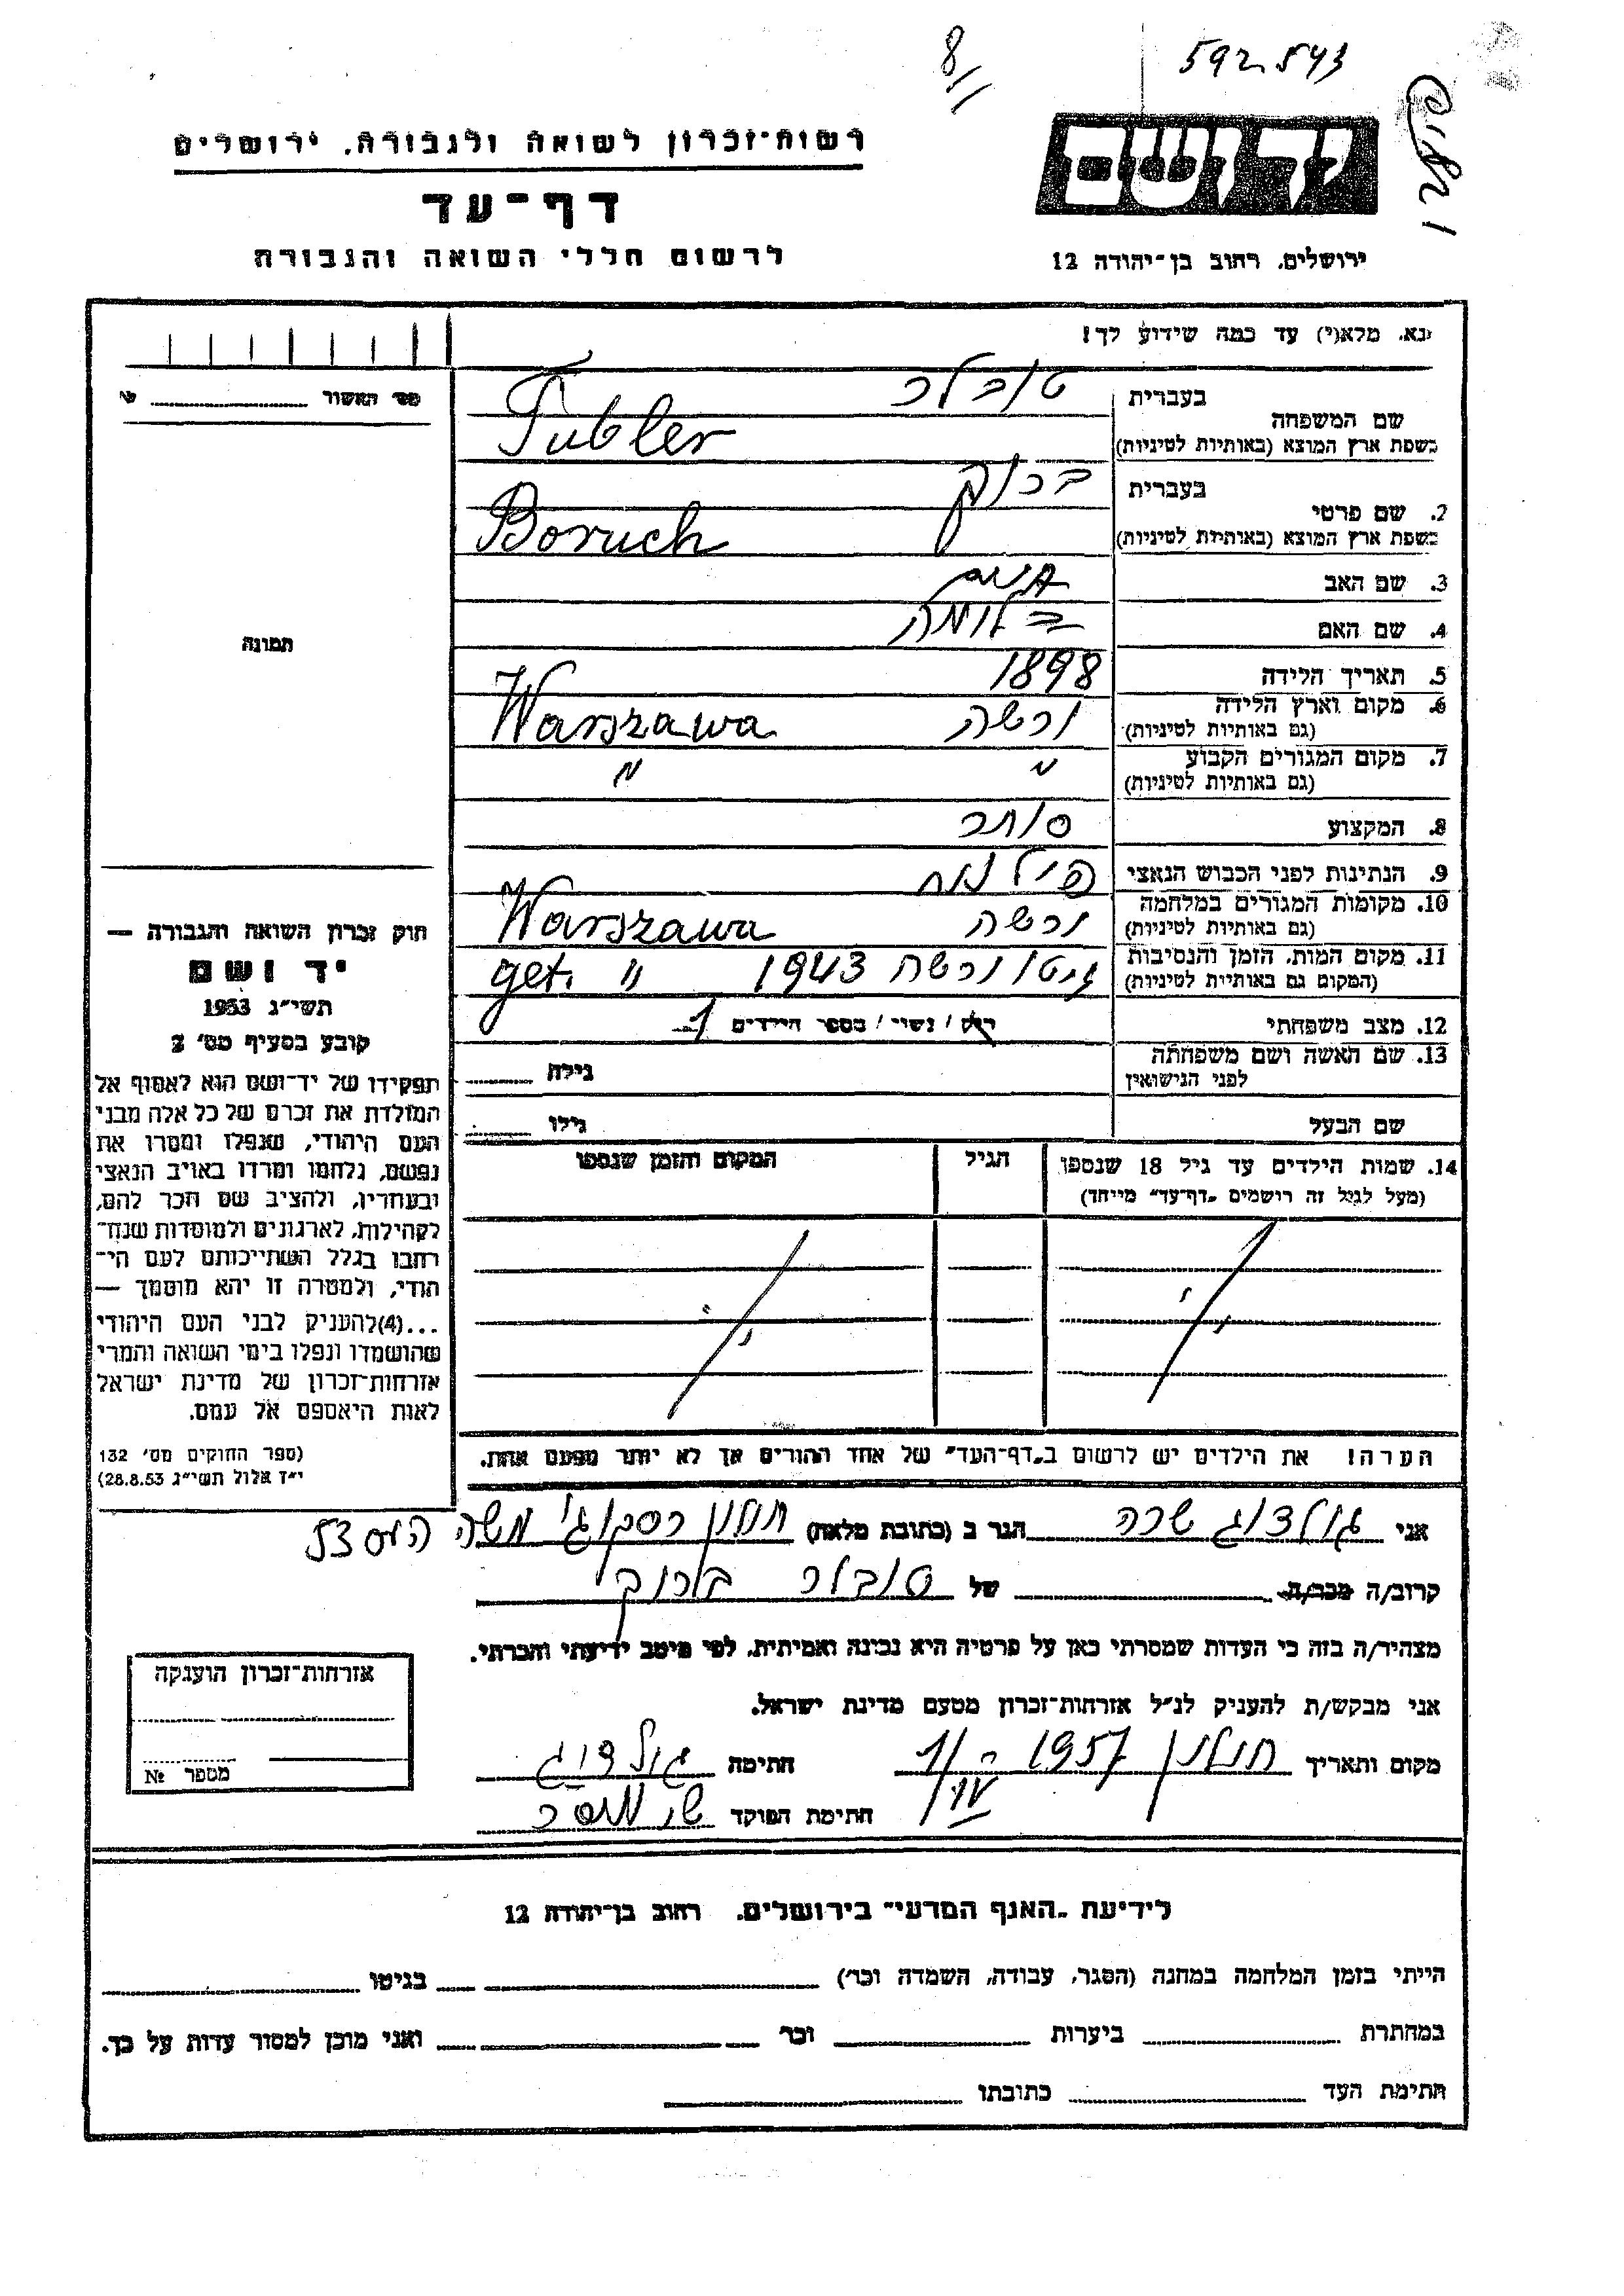 592543
8
יד ושם
רשות־זכרון לשואה ולגבורה, ירושלים
דף־עד
לרשום חללי השואה והגבורה
ירושלים, רחוב בן־יהודה 12
נא, מלא(י) עד כמה שידוע לך!
מס' האשור
תמונה
חוק זכרון השואה והגבורה —
יד ושם
תשי״ג 1953
קובע בסעיף מס' 2
תפקידו של יד־ושם הוא לאסוף אל
המולדת את זכרם של כל אלה מבני
העם היהודי, שנפלו ומסרו את
נפשם, נלחמו ומרדו באויב הנאצי
ובעוזריו, ולהציב שם וזכר להם,
לקהילות, לארגונים ולמוסדות שנח־
רבו בגלל השתייכותם לעם הי־
הודי, ולמטרה זו יהא מוסמך —
...(4)להעניק לבני העם היהודי
שהושמדו ונפלו בימי השואה והמרי
אזרחות־זכרון של מדינת ישראל
לאות היאספם אל עמם.
(ספר החוקים מס' 132
י״ז אלול תשי״ג 28.8.53)
שם המשפחה
בעברית טובלר
בשפת ארץ המוצא (באותיות לטיניות) Tubler
2. שם פרטי
בעברית ברוך
בשפת ארץ המוצא (באותיות לטיניות) Boruch
3. שם האב
4. שם האם בלומה
5. תאריך הלידה 1898
6. מקום וארץ הלידה ורשה Warszawa
(גם באותיות לטיניות)
7. מקום המגורים הקבוע " "
(גם באותיות לטיניות)
8. המקצוע סוחר
9. הנתינות לפני הכבוש הנאצי
10. מקומות המגורים במלחמה ורשה Warszawa
(גם באותיות לטיניות)
11. מקום המות, הזמן והנסיבות גיטו ורשה 1943 get. "
(המקום גם באותיות לטיניות)
12. מצב משפחתי רוק / נשוי / מספר הילדים 1
13. שם האשה ושם משפחתה גילה
לפני הנישואין
שם הבעל גילו
14. שמות הילדים עד גיל 18 שנספו הגיל המקום והזמן שנספו
(מעל לגיל זה רושמים „דף־עד” מייחד)
הערה! את הילדים יש לרשום ב„דף־העד” של אחד ההורים אך לא יותר מפעם אחת.
אני גולדצוג שרה הגר ב (כתובת מלאה) חולון משה 53
קרוב/ה מכר/ה של טובלר ברוך
מצהיר/ה בזה כי העדות שמסרתי כאן על פרטיה היא נכונה ואמיתית, לפי מיטב ידיעתי והכרתי.
אני מבקש/ת להעניק לנ״ל אזרחות־זכרון מטעם מדינת ישראל.
מקום ותאריך חולון 1957 חתימה
חתימת הפוקד
אזרחות־זכרון הוענקה
מספר №
לידיעת „האגף המדעי” בירושלים, רחוב בן־יהודה 12
הייתי בזמן המלחמה במחנה (הסגר, עבודה, השמדה וכו') בגיטו
במחתרת ביערות וכו' ואני מוכן למסור עדות על כך.
חתימת העד כתובתו